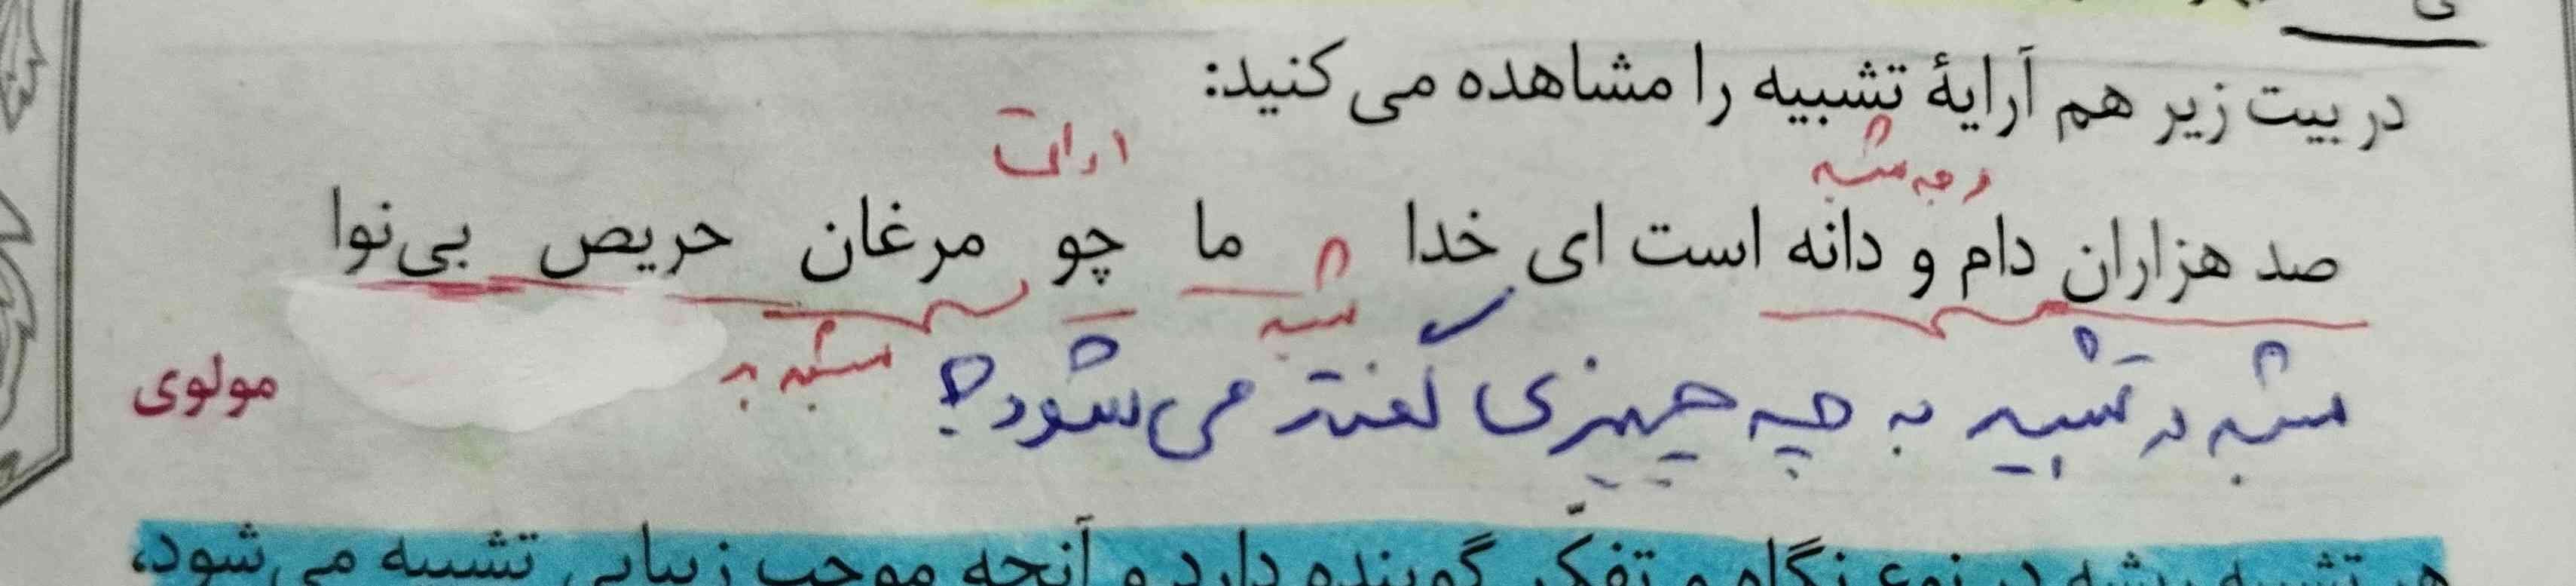 در بیت زیر هم آرایهٔ تشبیه را مشاهده می کنید:
وجه شبه ادات
صد هزاران دام و دانه است ای خدا ما چو مرغان حریص بی‌نوا
مشبه مشبه به
مشبه در تشبیه به چه چیزی گفته می شود؟
مولوی
هر تشبیه ریشه در نوع نگاه و تفکّر گوینده دارد و آنچه موجب زیبایی تشبیه می شود،